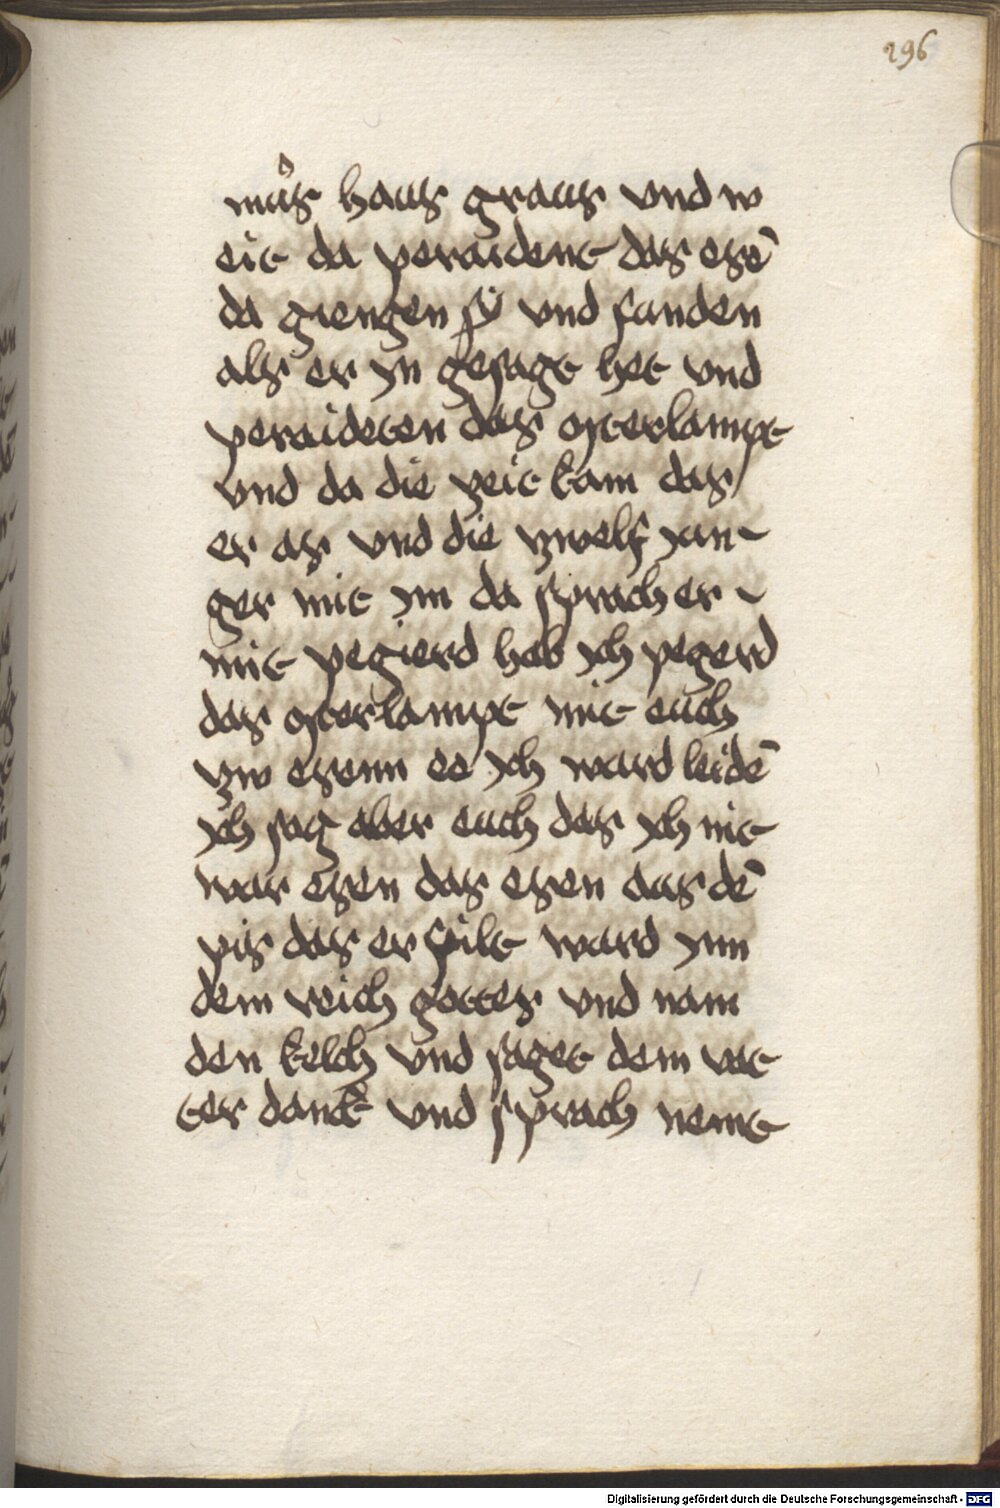 296
můs haus graus vnd w
eit da peraident das esē
da giengen sÿ vnd fanden
als er yn gesagt het vnd
peraideten das osterlampt
vnd da die zeit kam das
er as vnd die zwelf yun-
ger mit ym da sprach er -
mit pegierd hab ych pegerd
das osterlampt mit euch
zw esenn ee ych ward leidē
ych sag aber euch das ych nit
war esen das esen aus dē
pis das er filt ward ynn
dem reich gottes vnd nam
den kelch vnd saget dem vat
ter danck vnd sprach nemt
Digitalisierung gefördert durch die Deutsche Forschungsgemeinschaft - DFG